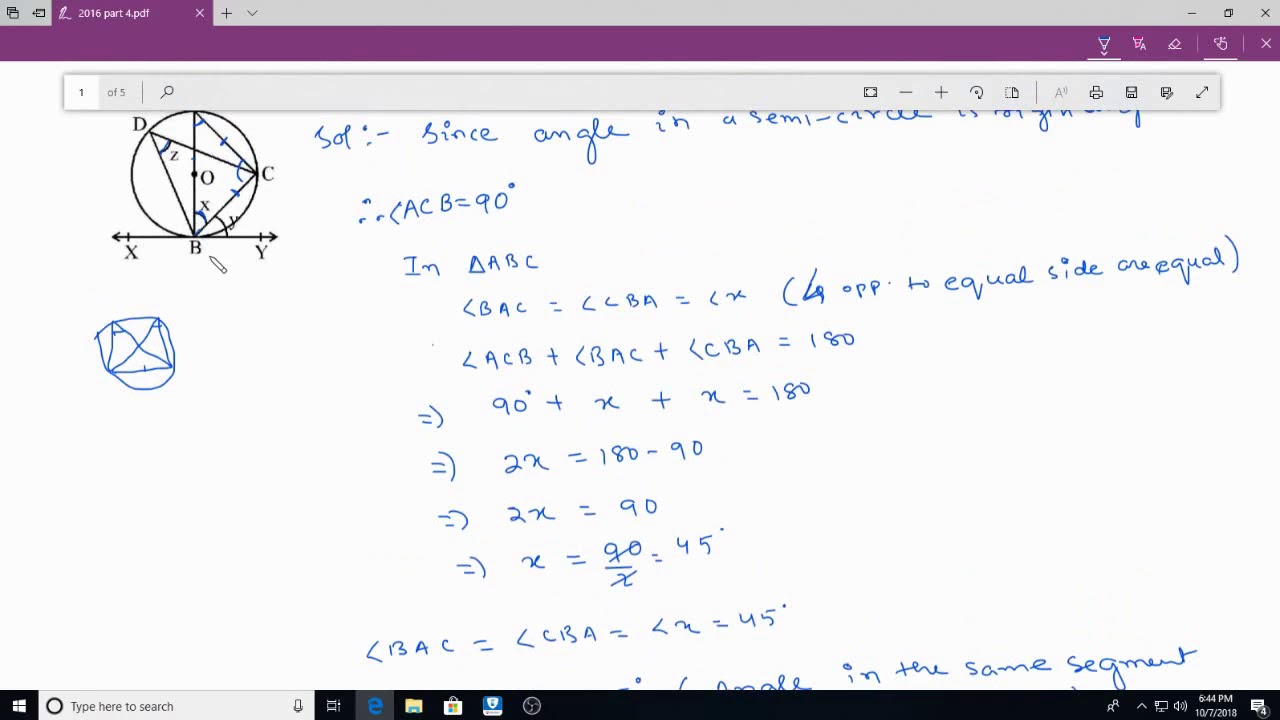 2016 part 4.pdf
1 of 5
Sol :- Since angle in a semi-circle is
D
z
O
C
x
y
X B Y
∴ ∠ACB = 90°
In ΔABC
∠BAC = ∠CBA = ∠x (∠s opp. to equal side are equal)
∠ACB + ∠BAC + ∠CBA = 180
=) 90° + x + x = 180
=) 2x = 180 - 90
=) 2x = 90
=) x = 90/2 = 45°
∠BAC = ∠CBA = ∠x = 45°
angle in the same segment
Type here to search
6:44 PM
10/7/2018
4